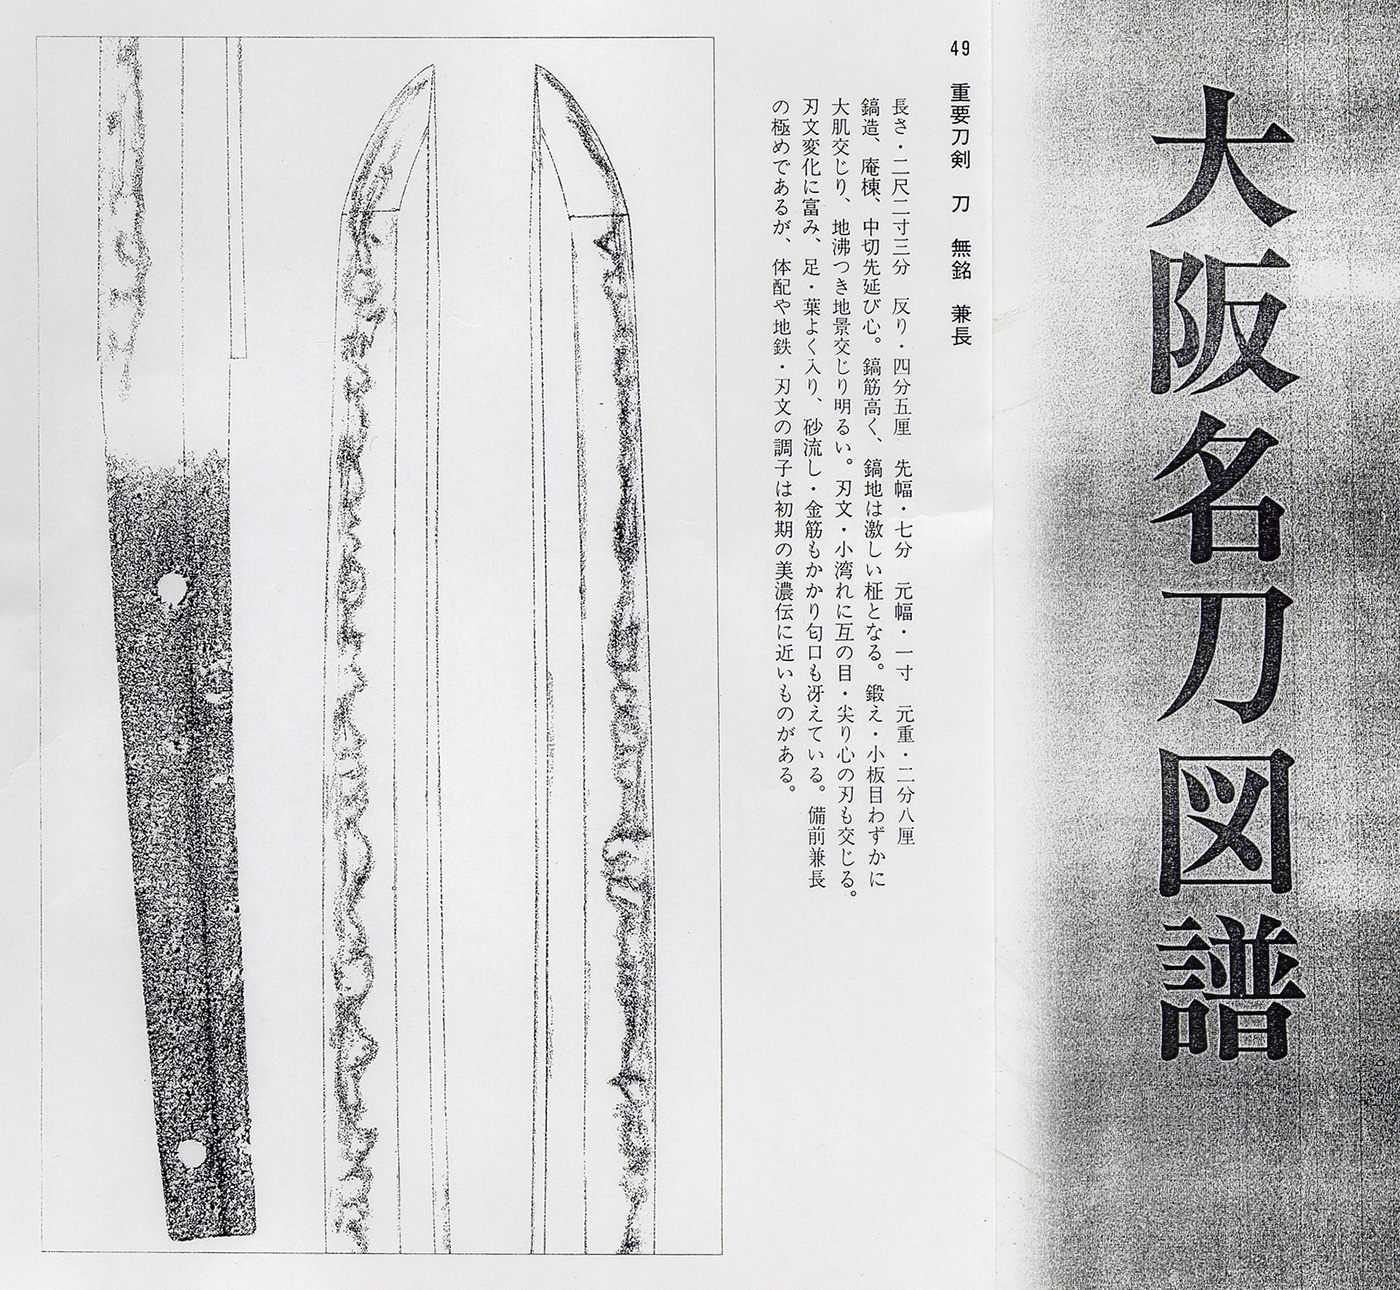 大阪名刀図譜
49 重要刀剣 刀 無銘 兼長
長さ・二尺二寸三分 反り・四分五厘 先幅・七分 元幅・一寸 元重・二分八厘
鎬造、庵棟、中切先延び心。鎬筋高く、鎬地は激しい柾となる。鍛え・小板目わずかに
大肌交じり、地沸つき地景交じり明るい。刃文・小湾れに互の目・尖り心の刃も交じる。
刃文変化に富み、足・葉よく入り、砂流し・金筋もかかり匂口も冴えている。備前兼長
の極めであるが、体配や地鉄・刃文の調子は初期の美濃伝に近いものがある。